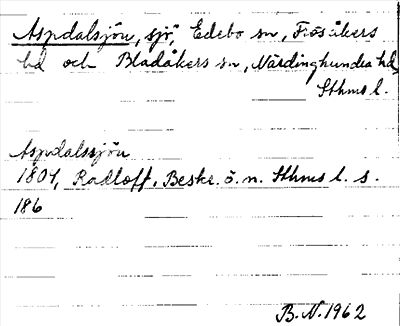 Aspdalsjön, sjö, Edebo sn, Frösåkers
hd och Bladåkers sn, Närdinghundra hd,
Sthms l.
Aspdalssjön
1804, Radloff, Beskr. ö. n. Sthms l. s.
186
B.N. 1962